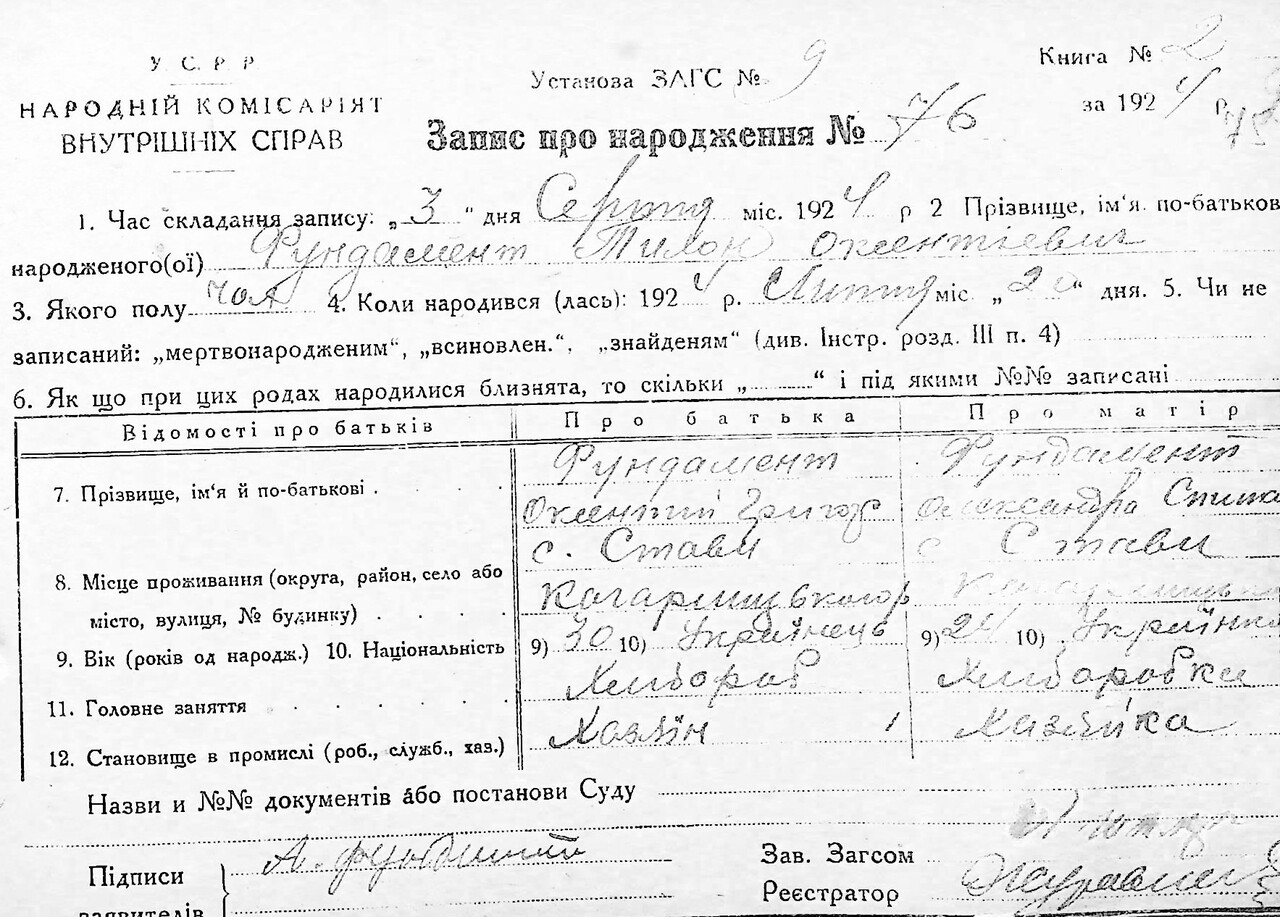 У. С. Р. Р
НАРОДНІЙ КОМІСАРІЯТ
ВНУТРІШНІХ СПРАВ
Установа ЗАГС № 9
Книга № 2
за 1924 р.
Запис про народження № 76
1. Час складання запису: „ 3 “ дня Серпня міс. 1924 р 2 Прізвище, ім'я по-батькові
народженого(ої) Фундамент Тилон Оксентієвич
3. Якого полу чол 4. Коли народився (лась): 1924 р. Липня міс „ 20 “ дня. 5. Чи не
записаний: „мертвонародженим“, „всиновлен.“, „знайденям“ (див. Інстр. розд. III п. 4)
6. Як що при цих родах народилися близнята, то скільки „ “ і під якими №№ записані
Відомості про батьків Про батька Про матір
7. Прізвище, ім'я й по-батькові . Фундамент Фундамент
Оксентій Григор Олександра
с. Стави с Стави
8. Місце проживання (округа, район, село або
місто, вулиця, № будинку) . Кагарлицького
9. Вік (років од народж.) 10. Національність 9) 30 10) Українець 9) 24 10) Українка
11. Головне заняття Хлибороб Хлиборобка
12. Становище в промислі (роб., служб., хаз.) Хазяїн 1 Хазяйка
Назви и №№ документів або постанови Суду
Підписи
заявителів
А. Фундамент
Зав. Загсом
Реєстратор